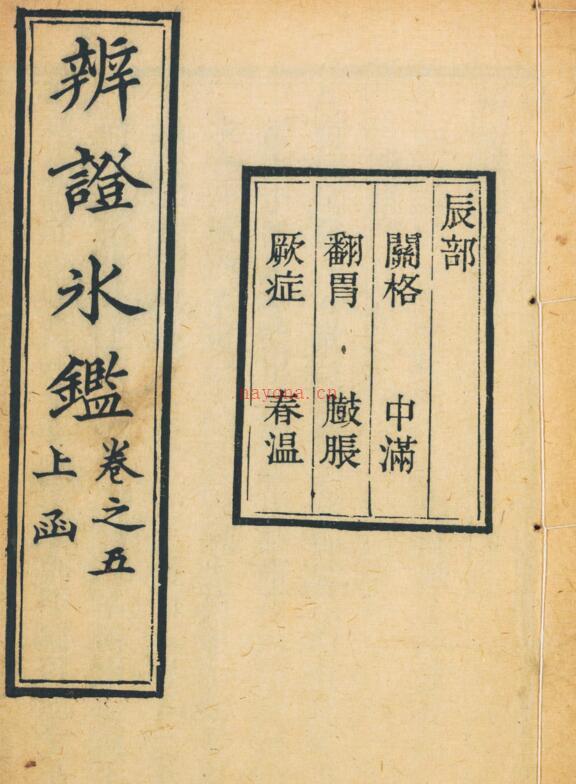 辰部
關格 中滿
翻胃 臌脹
厥症 春温
辨證氷鑑
卷之五
上函
nayona.cn